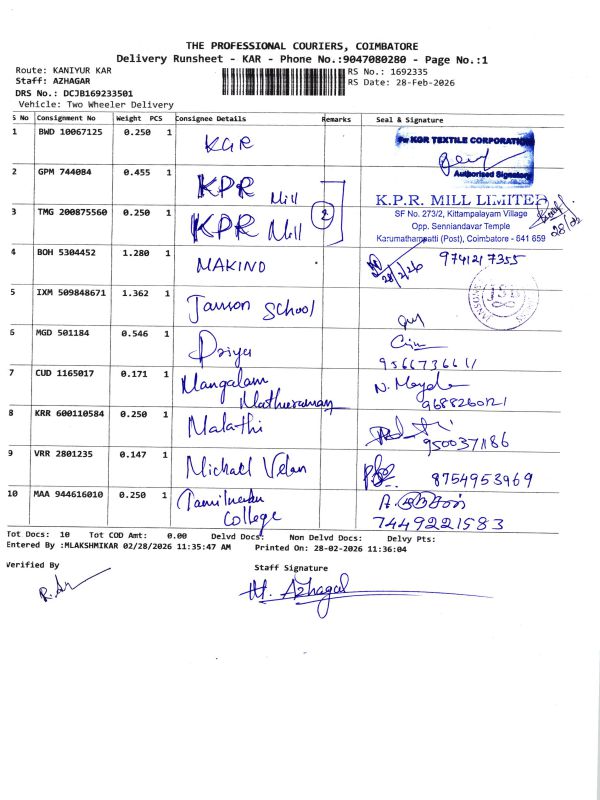 THE PROFESSIONAL COURIERS, COIMBATORE
Delivery Runsheet - KAR - Phone No.:9047080280 - Page No.:1
Route: KANIYUR KAR
RS No.: 1692335
Staff: AZHAGAR
RS Date: 28-Feb-2026
DRS No.: DCJB169233501
Vehicle: Two Wheeler Delivery
S No Consignment No Weight PCS Consignee Details Remarks Seal & Signature
1 BWD 10067125 0.250 1 KGR
For KGR TEXTILE CORPORATION
Authorised Signatory
2 GPM 744084 0.455 1 KPR Mill
K.P.R. MILL LIMITED
3 TMG 200875560 0.250 1 KPR Mill 2
SF No. 273/2, Kittampalayam Village
Opp. Senniandavar Temple
Karumathampatti (Post), Coimbatore - 641 659
4 BOH 5304452 1.280 1 MAKINO 9741217355
28/2/26
5 IXM 509848671 1.362 1 Janson School
6 MGD 501184 0.546 1 Priya
7 CUD 1165017 0.171 1 Mangalam
8 KRR 600110584 0.250 1 Malathi
9 VRR 2801235 0.147 1 Michael Velan 8754953969
10 MAA 944616010 0.250 1 Tamilnadu College
7449221583
Tot Docs: 10 Tot COD Amt: 0.00 Delvd Docs: Non Delvd Docs: Delvy Pts:
Entered By :MLAKSHMIKAR 02/28/2026 11:35:47 AM Printed On: 28-02-2026 11:36:04
Verified By Staff Signature
Azhagar